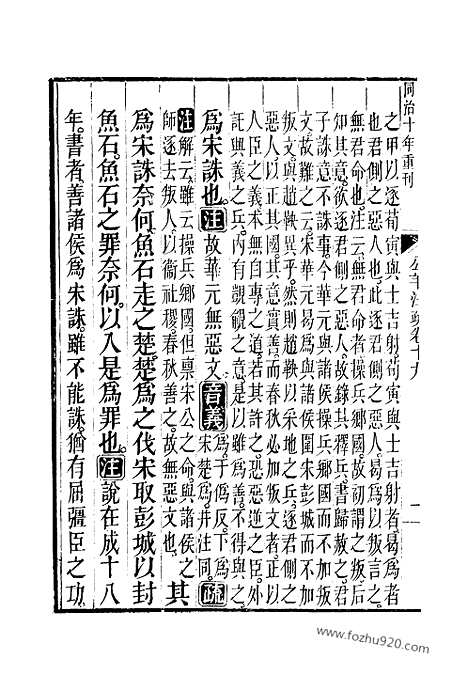 同治十年重刊
公羊注疏卷十九
二
之甲以逐荀寅與士吉射荀寅與士吉射者曷爲者
也君側之惡人也此逐君側之惡人曷爲以叛言之
無君命也注云無君命者操兵鄉國故初謂之叛后
知其意欲逐君側之惡人故錄其釋兵書歸赦之君
子誅意不誅事今華元與諸侯圍宋彭城而不加叛
文故難之云宋華元曷爲與諸侯操兵鄉國而不加
叛文與趙鞅異乎然則趙鞅以采地之兵逐君側之
惡人以正其國其意實善而春秋必加叛文者正以
人臣之義本無自專之道若其許之恐惡逆之臣外
託興義之兵內有覬覦之意是以雖爲善不得與之
爲宋誅也注故華元無惡文音義爲于僞反下爲
宋楚爲并注同疏
注解云雖云操兵鄉國稟宋公之命與諸侯之
師逐去叛人以衞社稷春秋善之故無惡文也其
爲宋誅奈何魚石走之楚楚爲之伐宋取彭城以封
魚石魚石之罪奈何以入是爲罪也注說在成十八
年書者善諸侯爲宋誅雖不能誅猶有屈彊臣之功
www.fozhu920.com